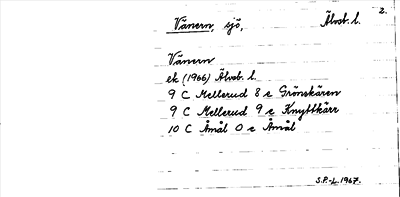 2.
Vänern, sjö, Älvsb. l.
Vänern
ek (1966) Älvsb. l.
9 C Mellerud 8 e Grönskären
9 C Mellerud 9 e Knyttkärr
10 C Åmål 0 e Åmål
S.P.-L. 1967.